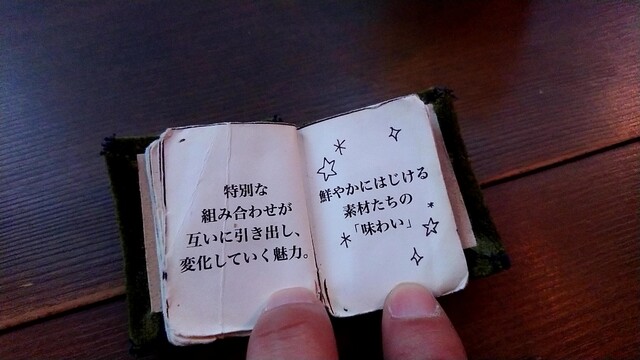 特別な
組み合わせが
互いに引き出し、
変化していく魅力。
鮮やかにはじける
素材たちの
「味わい」